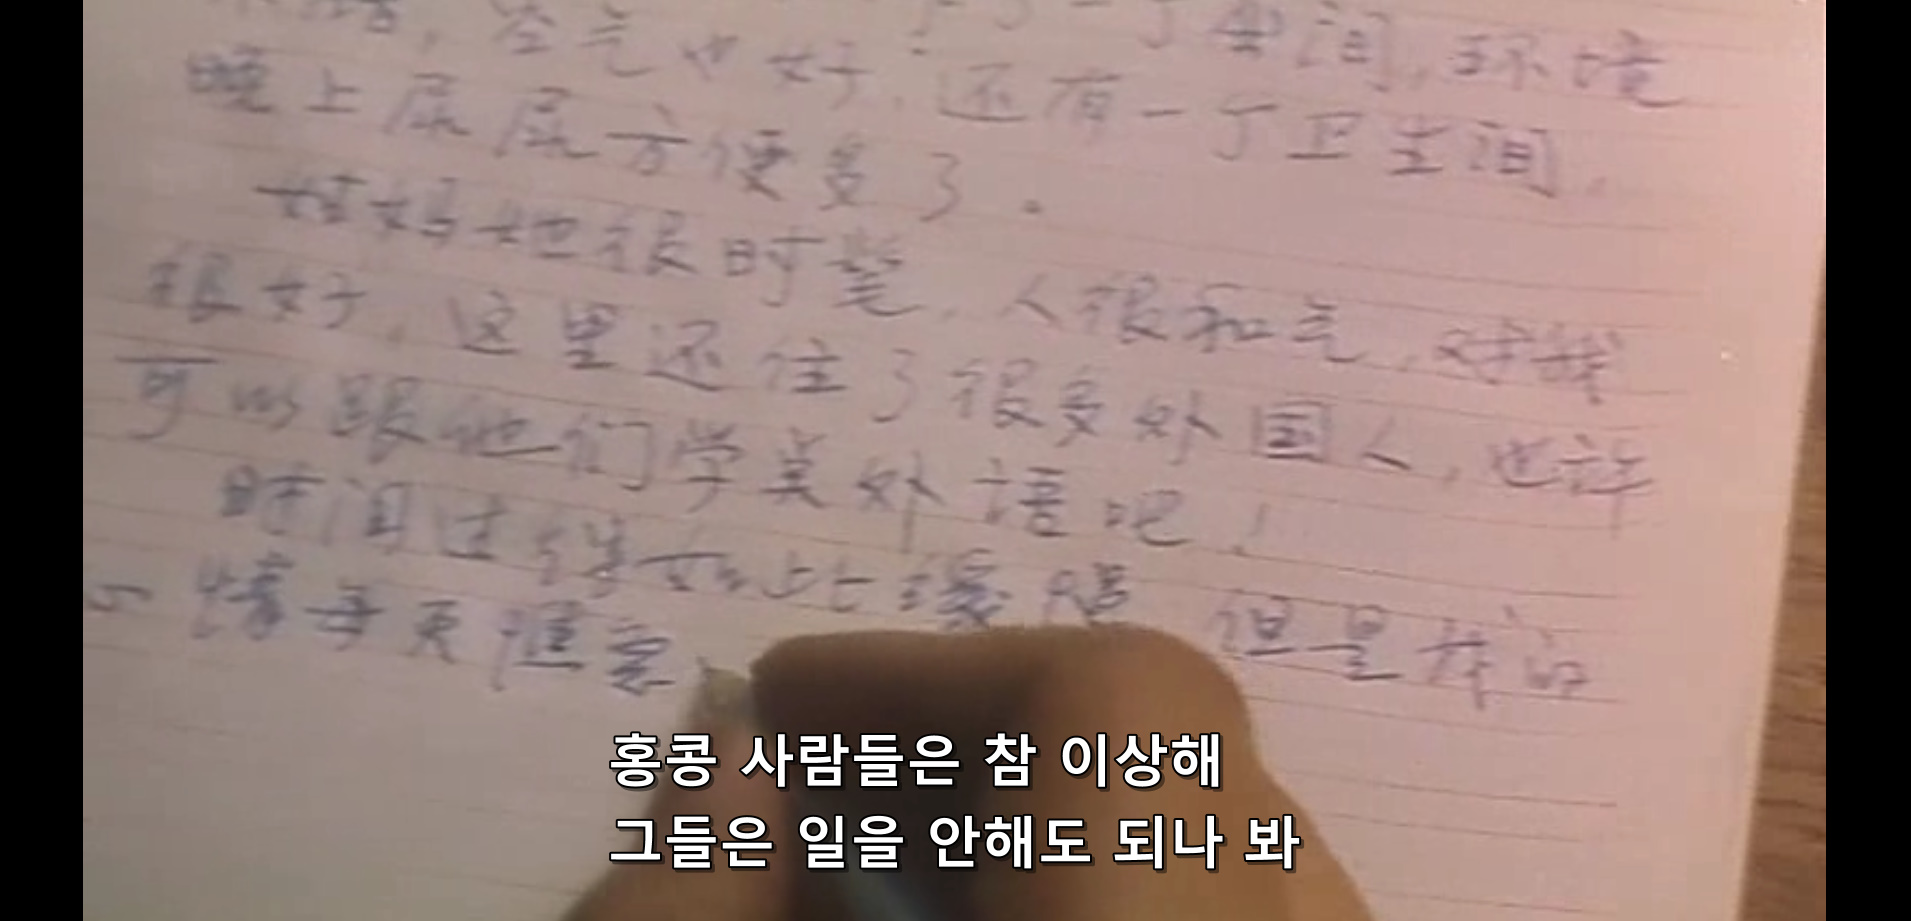 空气也好，
房间，环境
晚上尿尿方便多了。还有一个卫生间，
妈她很时髦，人很和气，对我
很好，这里还住了很多外国人，也许
可以跟他们学点外语吧！
时间过得如此缓慢 但是我的
心情每天
홍콩 사람들은 참 이상해
그들은 일을 안해도 되나 봐